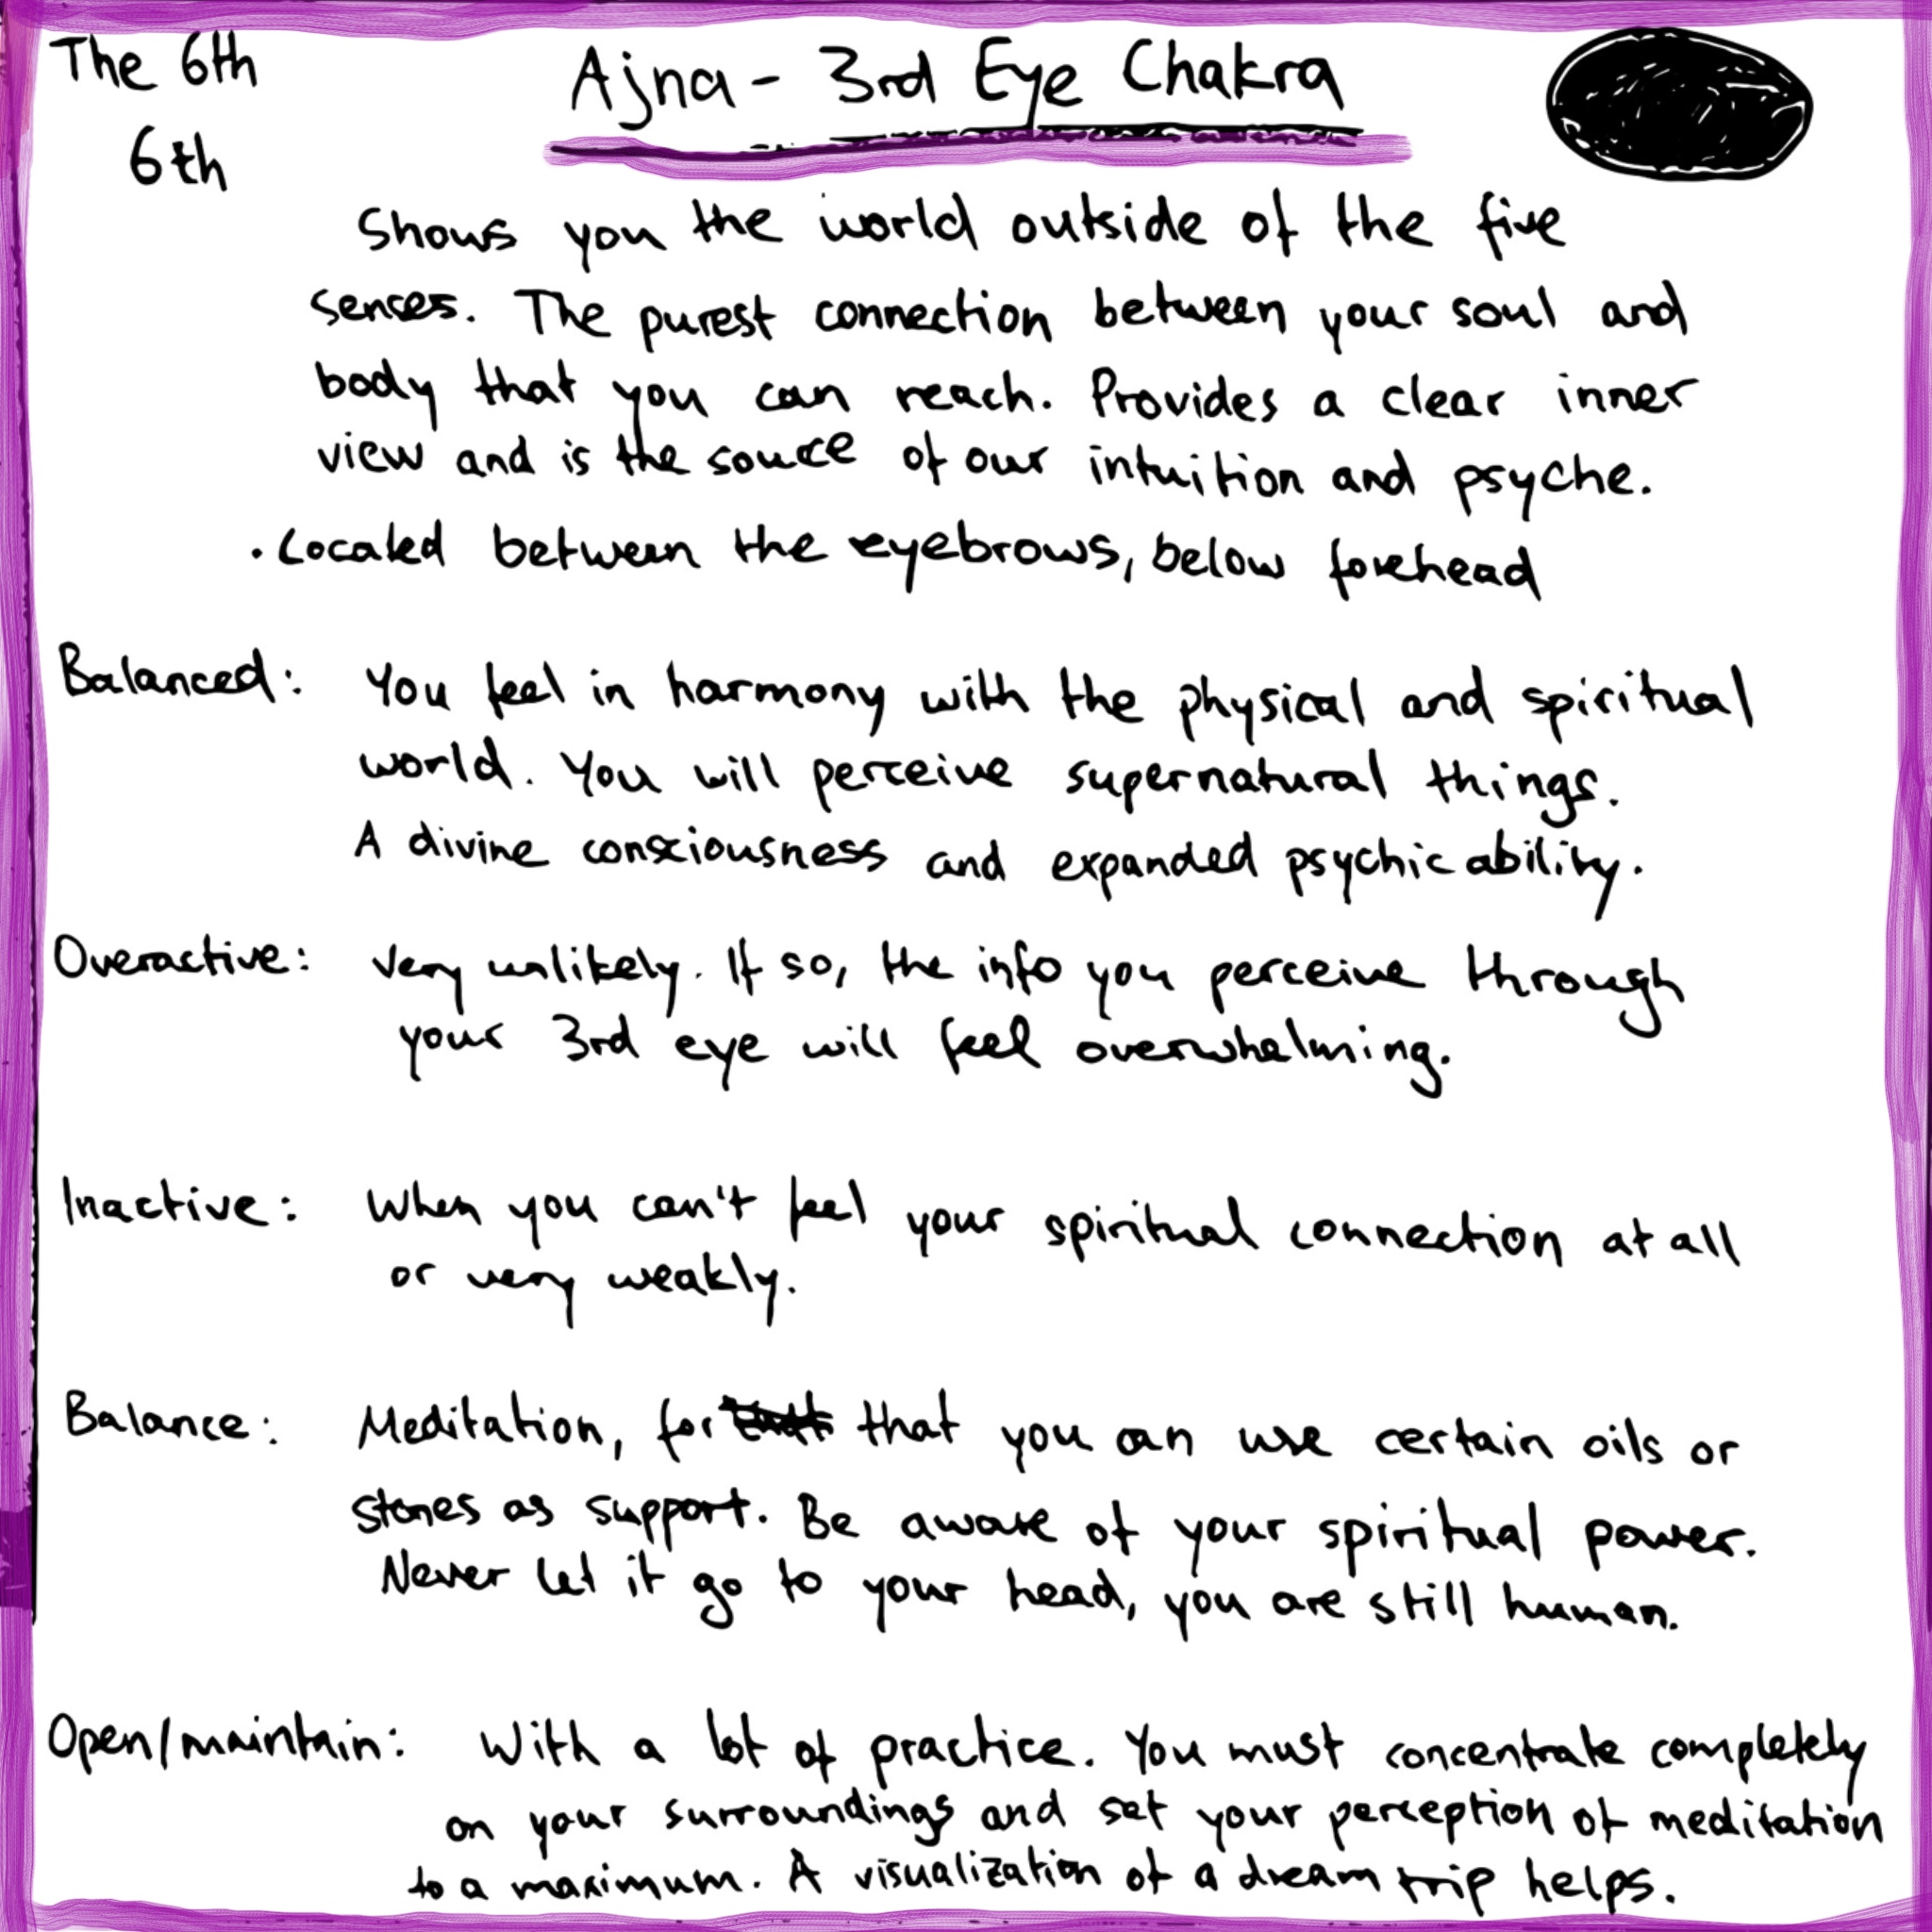 The 6th
6th
Ajna - 3rd Eye Chakra
Shows you the world outside of the five
senses. The purest connection between your soul and
body that you can reach. Provides a clear inner
view and is the source of our intuition and psyche.
· Located between the eyebrows, below forehead
Balanced: You feel in harmony with the physical and spiritual
world. You will perceive supernatural things.
A divine consciousness and expanded psychic ability.
Overactive: Very unlikely. If so, the info you perceive through
your 3rd eye will feel overwhelming.
Inactive: When you can't feel your spiritual connection at all
or very weakly.
Balance: Meditation, for that you can use certain oils or
stones as support. Be aware of your spiritual power.
Never let it go to your head, you are still human.
Open/maintain: With a lot of practice. You must concentrate completely
on your surroundings and set your perception of meditation
to a maximum. A visualization of a dream trip helps.